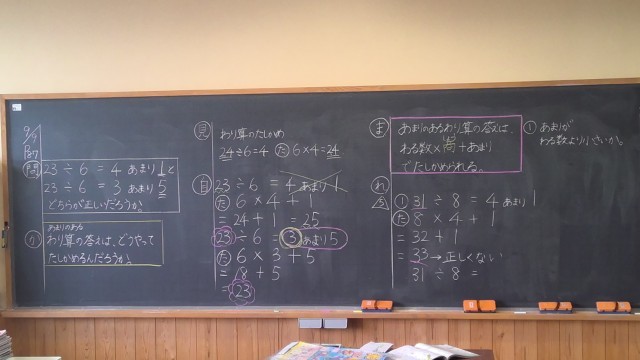 9/9
P87
問
23÷6=4 あまり1と
23÷6=3 あまり5
どちらが正しいだろうか。
か
あまりのある
わり算の答えは、どうやって
たしかめるんだろうか。
見
わり算のたしかめ
24÷6=4 た 6×4=24
自
23÷6=4 あまり1
た 6×4+1
=24+1=25
23÷6=3 あまり5
た 6×3+5
=18+5
=23
ま
あまりのあるわり算の答えは、
わる数×商+あまり
でたしかめられる。
れ
① 31÷8=4 あまり1
た 8×4+1
=32+1
=33→正しくない
31÷8=
① あまりが
わる数より小さいか。